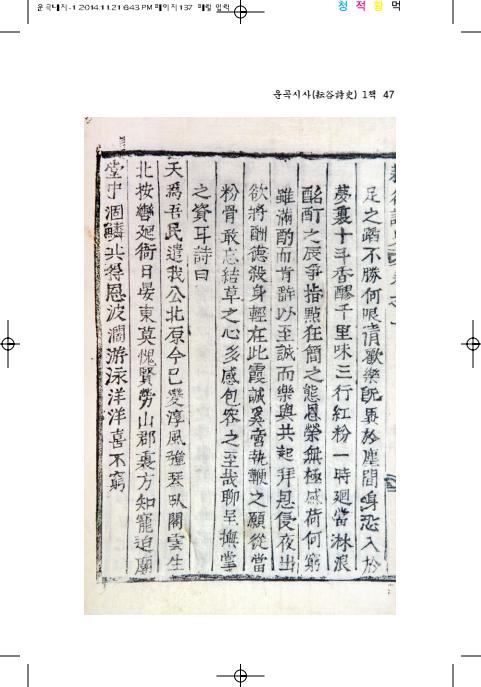 운곡시사-1 2014.11.21 6:43 PM 페이지137 매킨 일력
청 적 황 먹
운곡시사(耘谷詩史) 1책 47
足之蹈不勝何眼情歡樂旣畢於塵間身恐入於
夢裏十斗香醪千里味三行紅粉一時廻當淋浪
酩酊之辰爭指點狂簡之態恩榮無極感荷何窮
雖滿酌而肯辭以至誠而樂與共起拜忽侵夜出
欲將酬德殺身輕在此霞誠奚啻執鞭之願從當
粉骨敢忘結草之心多感包容之至哉聊呈撫掌
之資耳詩曰
天爲吾民遣我公北原今已變淳風强琴臥閣雲生
北按轡廻衙日晏東莫愧賢勞山郡裏方知寵迫廟
堂中涸鱗共得恩波濶游泳洋洋喜不窮